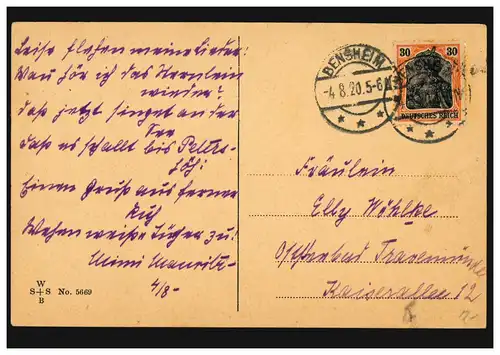 Leise flehen meine Lieder:
Wau hör ich das Sternlein
wieder?
das jetzt singet an der
See
daß es schallt bis
Einen Gruß aus ferner
Wehen weiße Tücher zu!
Mimi
4/8-
W
S+S No. 5669
B
BENSHEIM
-4.8.20.5-6
30 30
DEUTSCHES REICH
Fräulein
Elly Wöhlke
Ostseebad Travemünde
Kaiserallee 12